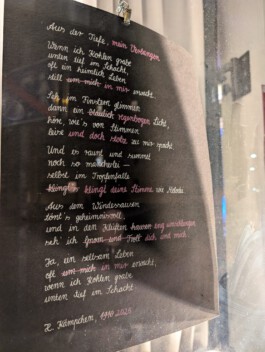 Aus der Tiefe, mein Verlangen
Wenn ich Kohlen grabe
unten tief im Schacht,
oft ein heimlich Leben
still um mich in mir erwacht.
Seh im Finstern glimmen
dann ein bläulich Licht,
hör, wie's von Stimmen
leise und doch stolz zu mir spricht.
Und es raunt und summt
noch so mancherlei —
selbst im Tropfenfalle
klingt's klingt deine Stimme wie Melodei.
Aus dem Windessausen
tönt's geheimnisvoll,
und in den Klüften hausen
seh' ich Gnom und Troll dich und mich
Ja, ein seltsam Leben
oft um mich in mir erwacht,
wenn ich Kohlen grabe
unten tief im Schacht
H. Kämpchen,